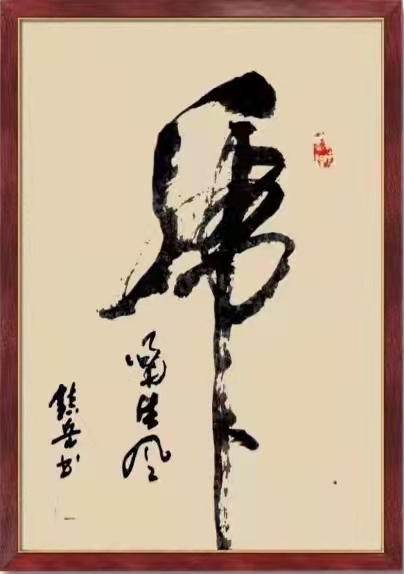 虎
啸生风
镇岳书